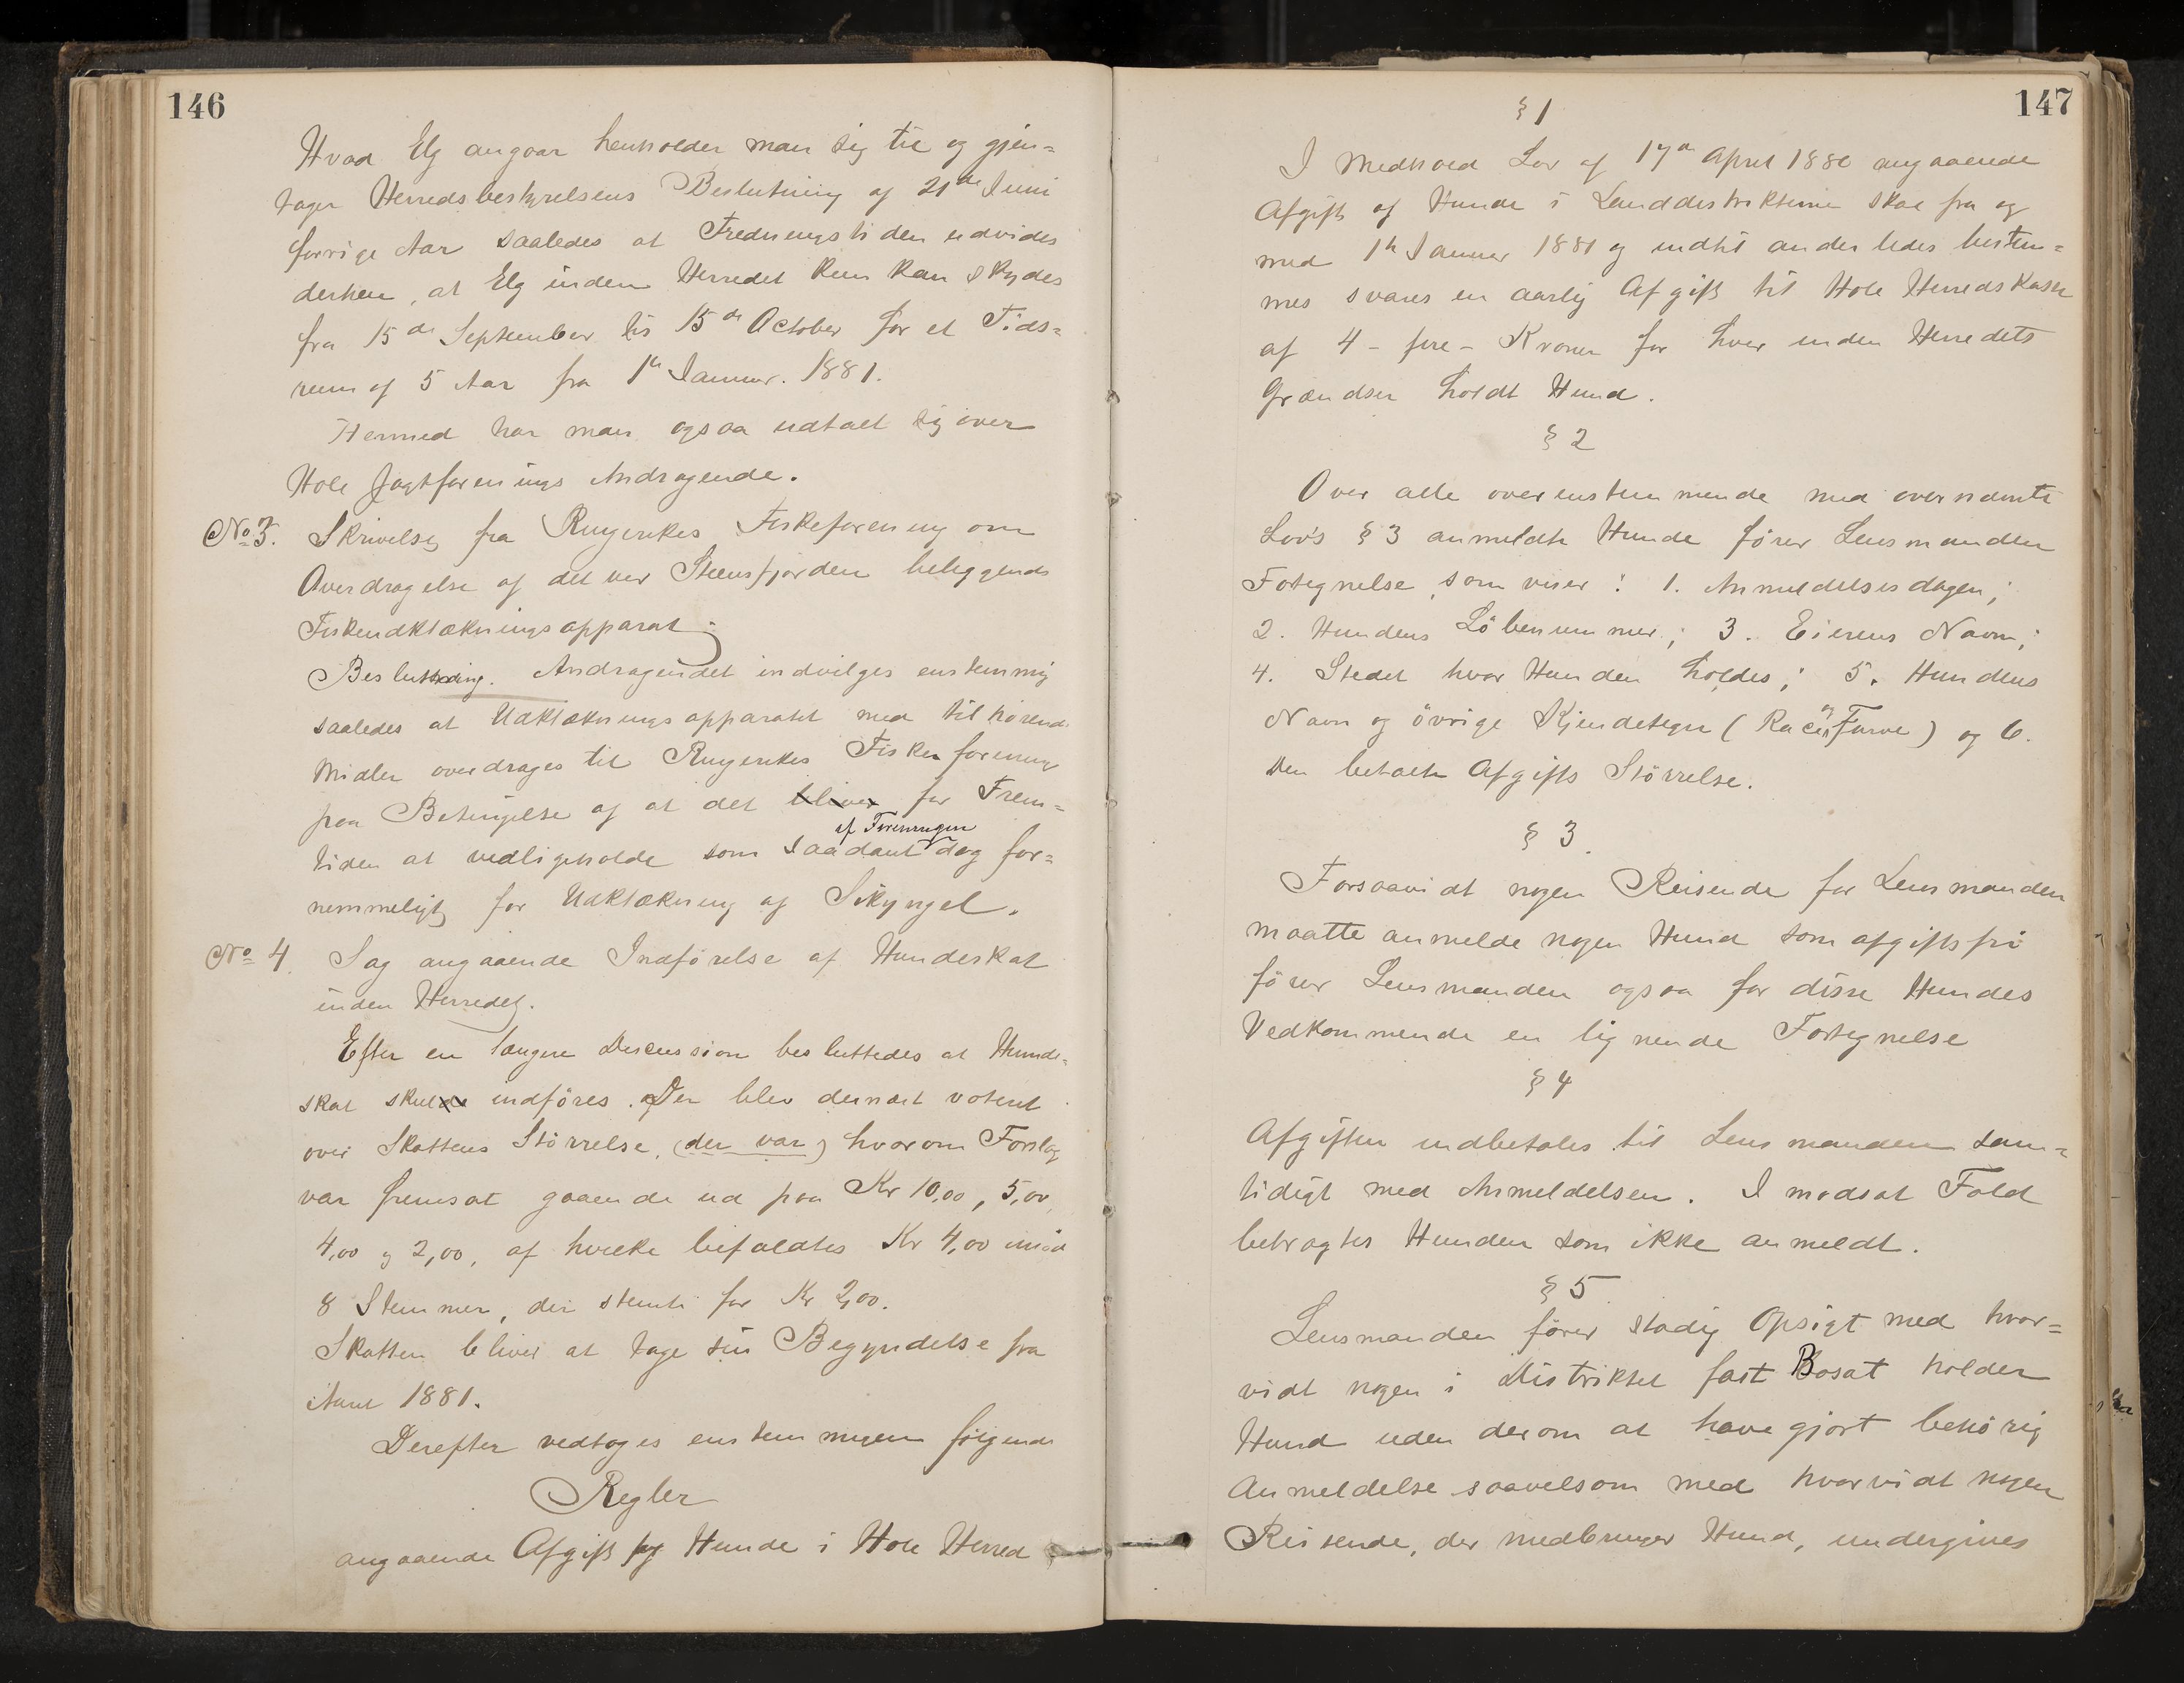 146
Hvad Elg angaar henholder man sig til og gjen=
tager Herredsbestyrelsens Beslutning af 21de Juni
forrige Aar saaledes at Fredningstiden udvides
derhen, at Elg inden Herredet kun kan skydes
fra 15de September til 15de October for et Tids=
rum af 5 Aar fra 1ste Januar. 1881.
Hermed har man ogsaa udtalt sig over
Hole Jagtforenings Andragende.
No 3. Skrivelse fra Ringerikes Fiskeforening om
Overdragelse af det ver Steensfjorden beliggende
Fiskeudklækningsapparat.
Beslutning. Andragendet indvilges enstemmig
saaledes at Udklækningsapparatet med tilhørende
Midler overdrages til Ringerikes Fiskeforening
paa Betingelse af at det bliver for Frem=
af Foreningen
tiden at vedligeholde som saadant dog for=
nemmeligt for Udklækning af Sikyngel.
No 4. Sag angaaende Indførelse af Hundeskat
inden Herredet.
Efter en længere Discussion besluttedes at Hunde=
skat skulde indføres. Der blev dernæst voteret
over Skattens Størrelse, (der var) hvorom Forslag
var fremsat gaaende ud paa Kr 10,00, 5,00,
4,00 og 2,00, af hvilke bifaldtes Kr 4,00 imod
8 Stemmer, der stemte for Kr 2,00.
Skatten bliver at tage sin Begyndelse fra
Aaret 1881.
Derefter vedtoges enstemmigen følgende
Regler
angaaende Afgift af Hunde i Hole Herred
147
§ 1
I Medhold Lov af 17de April 1880 angaaende
Afgift af Hunde i Landdistrikterne skal fra og
med 1ste Januar 1881 og indtil anderledes bestem=
mes svares en aarlig Afgift til Hole Herredskasse
af 4 - fire - Kroner for hver inden Herredets
Grændser holdt Hund.
§ 2
Over alle overensstemmende med overnævnte
Lov's § 3 anmeldte Hunde fører Lensmanden
Fortegnelse, som viser: 1. Anmeldelsesdagen;
2. Hundens Löbenummer; 3. Eierens Navn;
4. Stedet hvor Hunden holdes; 5. Hundens
Navn og övrige Kjendetegn (Race og Farve) og 6.
Den betalte Afgifts Störrelse.
§ 3.
Forsaavidt nogen Reisende for Lensmanden
maatte anmelde nogen Hund som afgiftsfri
förer Lensmanden ogsaa for disse Hundes
Vedkommende en lignende Fortegnelse
§ 4
Afgiften indbetales til Lensmanden sam=
tidigt med Anmeldelsen. I modsat Fald
betragtes Hunden som ikke anmeldt.
§ 5
Lensmanden förer stadig Opsigt med hvor=
vidt nogen i Distriktet fast Bosat holder
Hund uden derom at have gjort behörig
Anmeldelse saavelsom med hvorvidt nogen
Reisende, der medbringer Hund, undergives